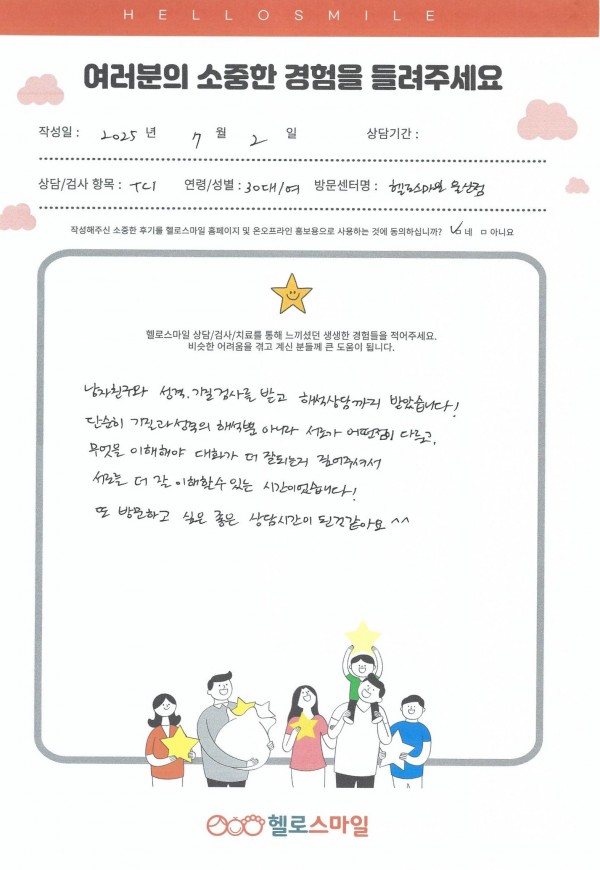 HELLOSMILE
여러분의 소중한 경험을 들려주세요
작성일 : 2025 년 7 월 2 일 상담기간 :
상담/검사 항목 : TCI 연령/성별 : 30대/여 방문센터명 : 헬로스마일
작성해주신 소중한 후기를 헬로스마일 홈페이지 및 온오프라인 홍보용으로 사용하는 것에 동의하십니까? ☑ 네 ㅁ 아니요
헬로스마일 상담/검사/치료를 통해 느끼셨던 생생한 경험들을 적어주세요.
비슷한 어려움을 겪고 계신 분들께 큰 도움이 됩니다.
남자친구와 성격, 기질검사를 받고 해석상담까지 받았습니다!
단순히 기질과 성격의 해석뿐 아니라 서로가 어떤점이 다르고,
무엇을 이해해야 대화가 더 잘되는지 짚어주셔서
서로를 더 잘 이해할수 있는 시간이었습니다!
또 방문하고 싶은 좋은 상담시간이 된것같아요 ^^
헬로스마일